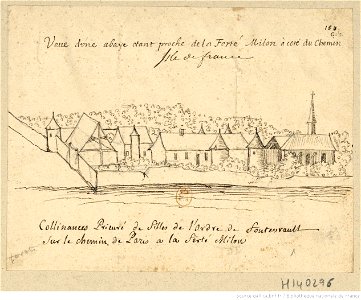 Veue d'une abaye étant proche de la Ferté Milon à coté du Chemin
Isle de france
Collinances Prieuré de Filles de l'ordre de Fontevrault
Sur le chemin de Paris a la Ferté Milon
H140296